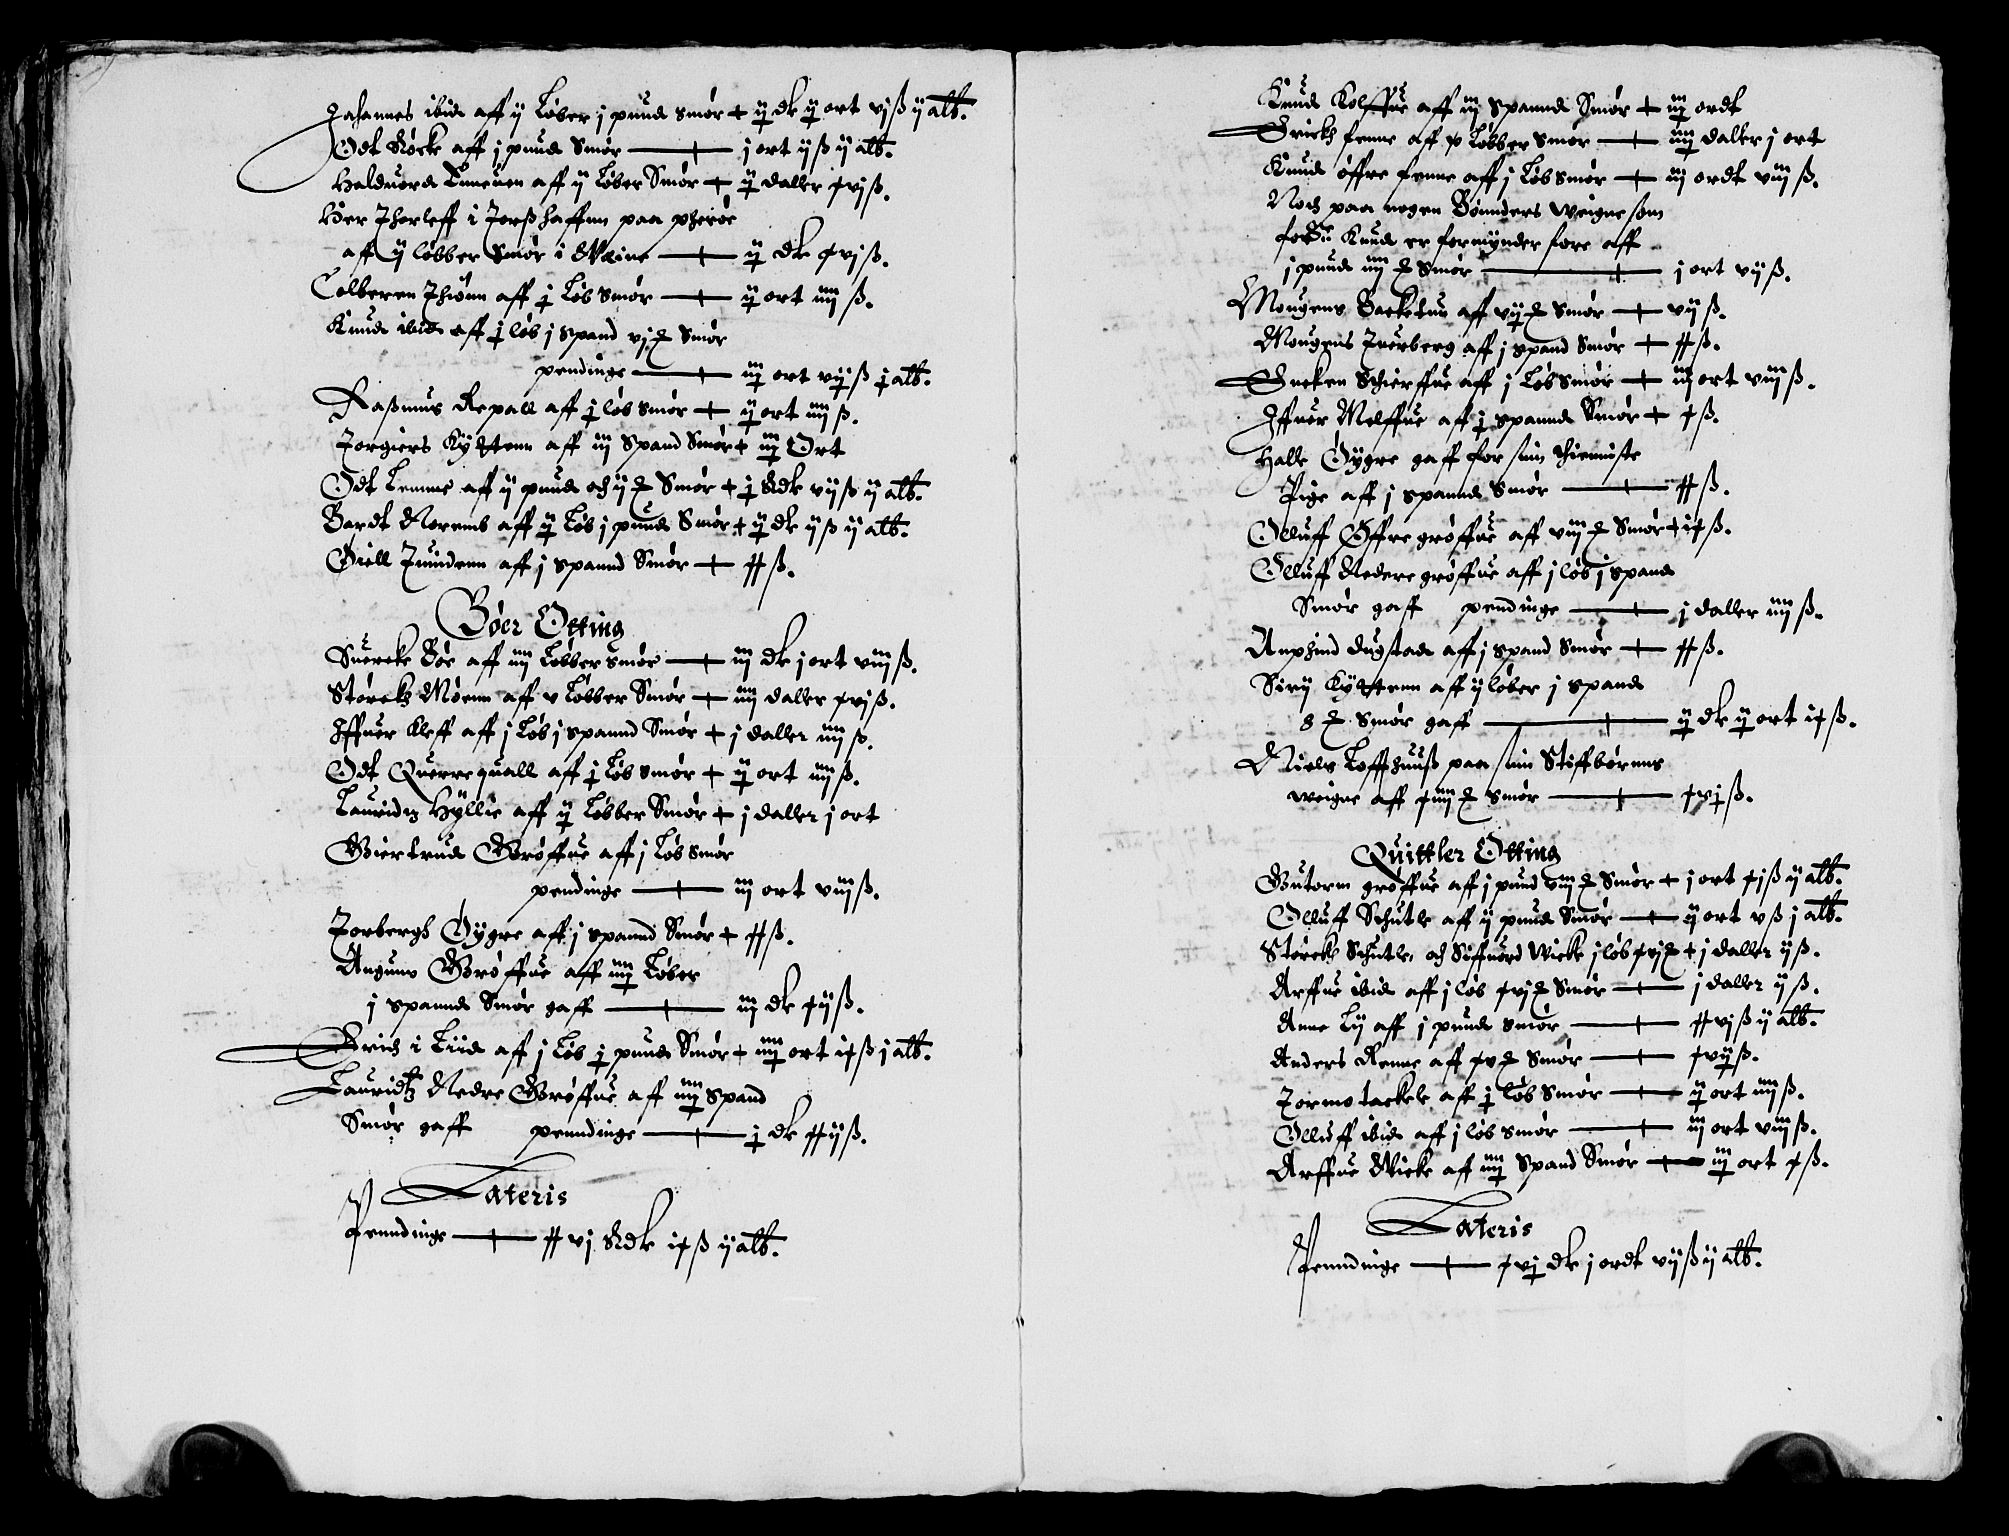 Johannes ibid aff ij Løber j pund smør + ij dlr ij ort vj ß ij alb.
Odt Røcke aff j pund Smør — j ort ij ß ij alb.
Halduord Tuneuen aff ij Løber Smør + ij daller xvj ß.
Her Thorleff i Torßhaffnn paa pherøe
aff ij løbber Smør i Weine — ij dlr xvj ß.
Colberen Thionn aff j Løb Smør — ij ort iiij ß.
Knud ibid aff j løb j spand vj Smør
pendinge — iij ort vij ß j alb.
Raßmus Repall aff j løb smør + ij ort iiij ß.
Torgiers Kyttenn aff iij Spand Smør + iij Ort
Odt Lemme aff ij pund och ij Smør + j Rdlr vij ß ij alb.
Bardt Norems aff ij Løb j pund Smør + ij dlr ij ß ij alb.
Giell Tuindenn aff j spannd Smør + xx ß.
Böer Otting
Suercke Böe aff iiij Løbber smør — iij dlr j ort viij ß.
Størckh Mörnn aff v Løbber Smør — iiij daller xvj ß.
Iffuer Kleff aff j Løb j spannd Smør + j daller iiij ß.
Odt Querrequall aff j Løb smør + ij ort iiij ß.
Lauridtz Hyllie aff ij Løbber Smør + j daller j ort
Giertrud Grøffue aff j Løb smør
pendinge — iij ort viij ß.
Torbergh Öygre aff j spannd Smør + xx ß.
Angunn Grøffue aff iiij Løber
j spannd Smør gaff — iij dlr xij ß.
Erich i Liid aff j Løb j pund Smør + iiij ort ix ß j alb.
Lauridtz Nedre Grøffue aff iiij spand
Smør gaff penndinge — j dlr xxij ß.
Lateris
Penndinge — xx vj Rdlr ix ß ij alb.
Knud Kolffue aff iij spannd Smør + iij ordt
Erickh fenne aff Løbber Smør — iiij daller j ort
Knud öffre fenne aff j Løb smør — iij ordt viij ß.
Noch paa nogen Bønnders weigne som
forßne Knud er formynder fore aff
j pund iiij Smør — j ort vij ß.
Mougens Backetun aff vij Smør — vij ß.
Mougens Tuerberg aff j spand Smør + xx ß.
Encken Schierffue aff j Løb smør — iij ort viij ß.
Iffuer Melffue aff j spannd Smør + x ß.
Halle Öygre gaff for sinn thienniste
Pige aff j spannd Smør — xx ß.
Olluff Öffre grøffue aff viij Smør + ix ß.
Olluff Nedere grøffue aff j løb j spand
Smør gaff pendinge — j daller iiij ß.
Anphind dugstad aff j spand Smør — xx ß.
Sirij Kyttenn aff ij løber j spand
8 smør gaff — ij dlr ij ort ix ß.
Niels Toffthuuß paa sinn Stiffbørnns
weigne aff xiiij smør — xvj ß.
Quittler Otting
Gutorm grøffue aff j pund viij Smør + j ort xj ß ij alb.
Olluff Schutle aff ij pund Smør — ij ort v ß j alb.
Størckh Schutle, och Siffuord Wicke j løb xvj + j daller ij ß.
Arffue ibid aff j løb xvj Smør — j daller ij ß.
Anne Lij aff j pund smør — xxvj ß ij alb.
Anders Renne aff xv Smør — xvij ß.
Tormo tackele aff j løb Smør — ij ort iiij ß.
Olluff ibid aff j løb smør — iij ort viij ß.
Arffue Wicke aff iiij Spand Smør — iij ort x ß.
Lateris
Penndinge — xvj dlr j ordt vij ß ij alb.